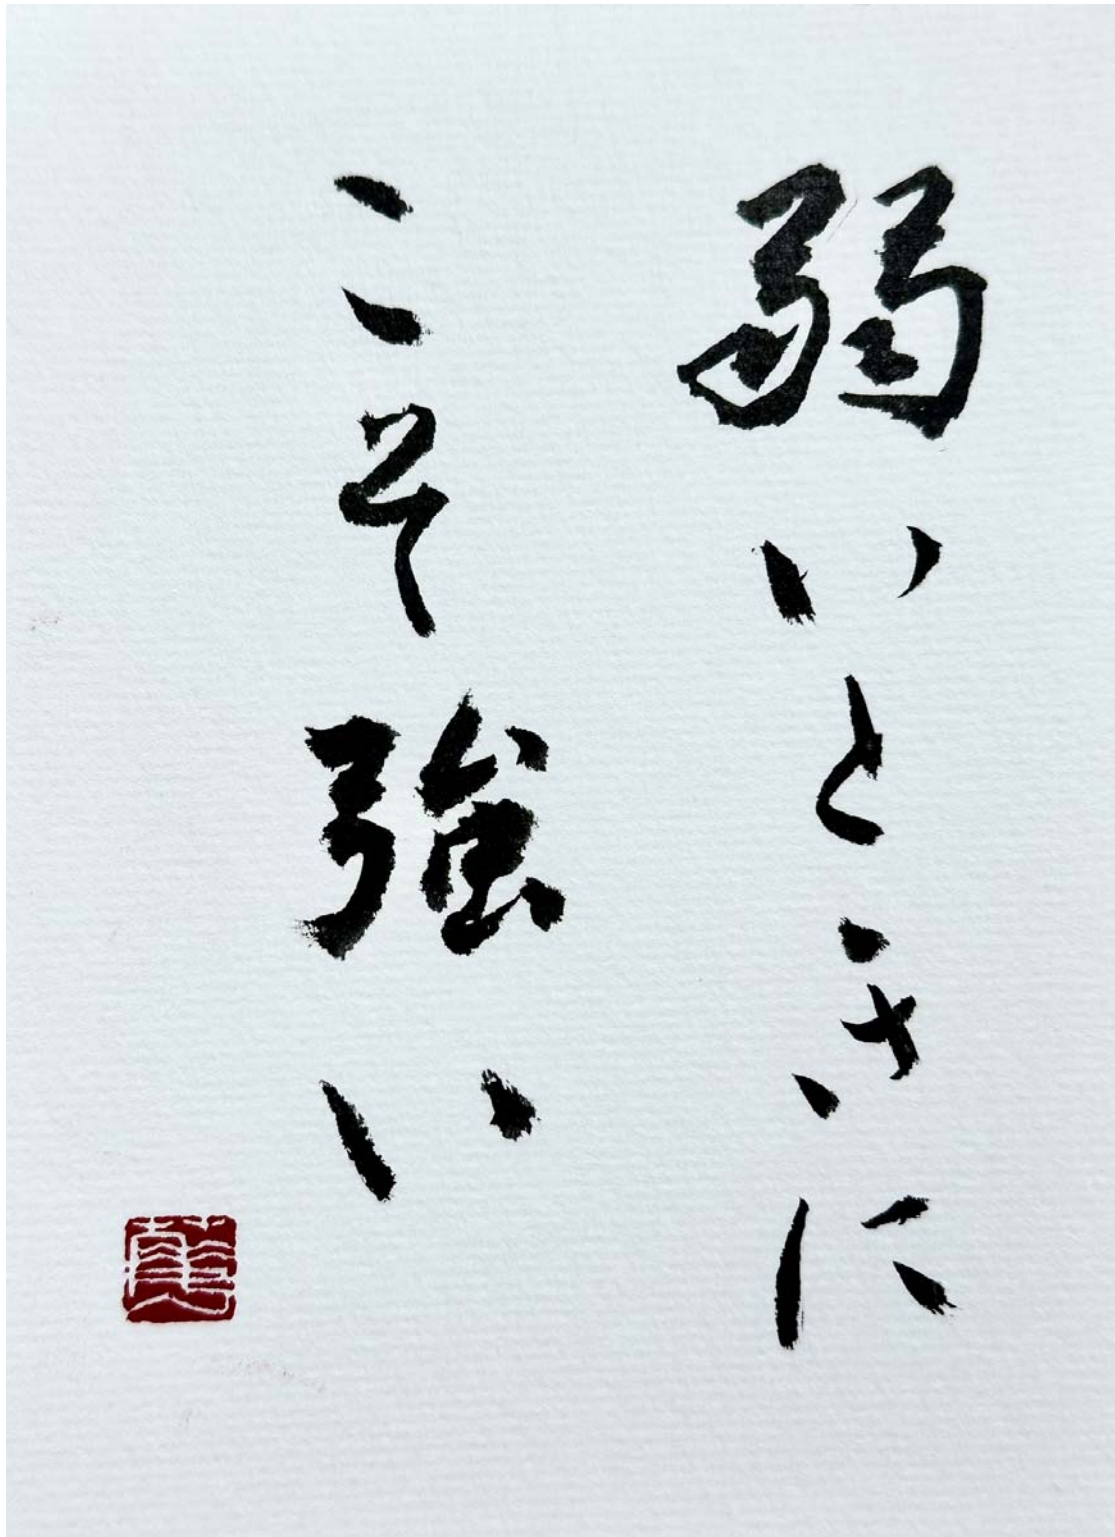 弱いときに
こそ強い